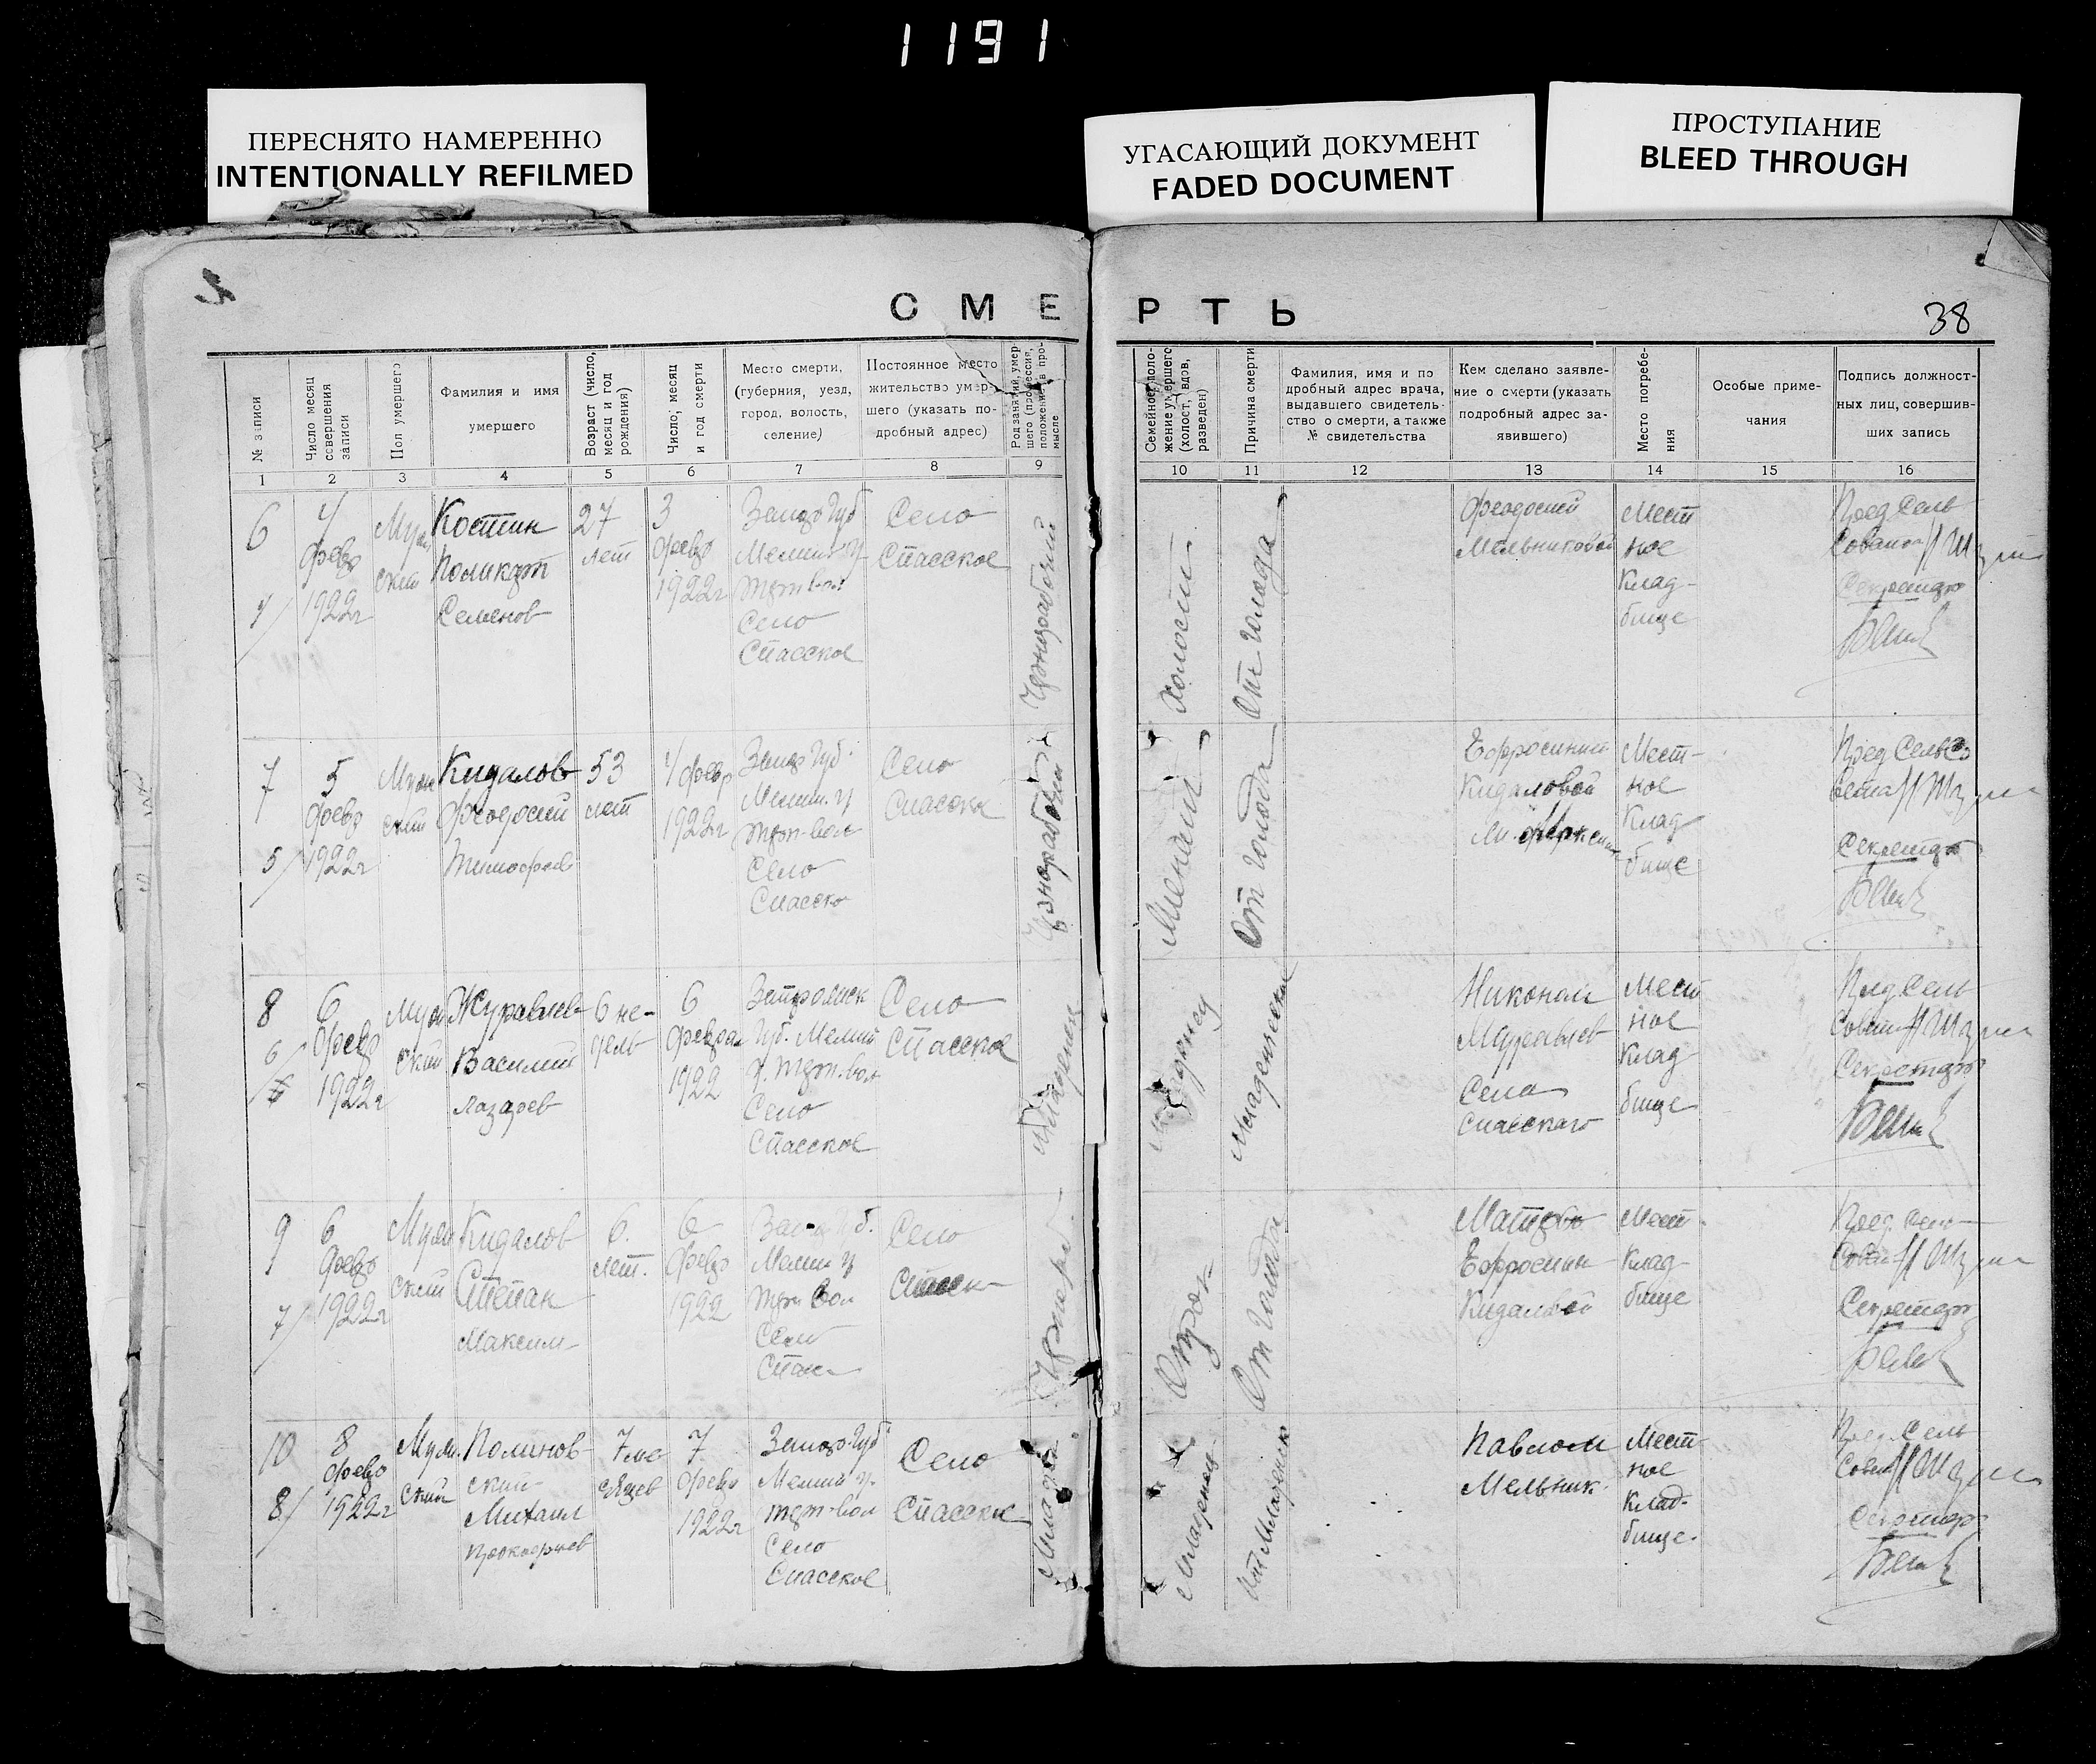 1191
ПЕРЕСНЯТО НАМЕРЕННО
INTENTIONALLY REFILMED
УГАСАЮЩИЙ ДОКУМЕНТ
FADED DOCUMENT
ПРОСТУПАНИЕ
BLEED THROUGH
СМЕРТЬ
38
№ записи
Число месяц
совершения
записи
Пол умершего
Фамилия и имя
умершего
Возраст (число,
месяц и год
рождения)
Число, месяц
и год смерти
Место смерти,
(губерния, уезд,
город, волость,
селение)
Постоянное место
жительство умер-
шего (указать по-
дробный адрес)
Род занятий, умер
шего (профессия,
положение в про-
мысле
Семейное поло-
жение умершего
(холост, вдов,
разведен)
Причина смерти
Фамилия, имя и по
дробный адрес врача,
выдавшего свидетель-
ство о смерти, а также
№ свидетельства
Кем сделано заявле-
ние о смерти (указать
подробный адрес за-
явившего)
Место погребе-
ния
Особые приме-
чания
Подпись должност-
ных лиц, совершив-
ших запись
1 2 3 4 5 6 7 8 9 10 11 12 13 14 15 16
6
4
4
февр
1922г
Муж
ский
Костин
Поликарп
Семенов
27
лет
3
февр
1922г
Запор Губ
Мелит у
вол
Село
Спасское
Село
Спасское
Чернорабочий
Холост
От голода
Феодосий
Мельниковой
Мест
ное
Клад-
бище
Пред Сель
Совета
Секретарь
7
5
5
февр
1922г
Муж
ский
Кидалов
Феодосий
Тимофеев
53
лет
4 февр
1922г
Запор Губ.
Мелит. у
вол
Село
Спасско
Село
Спасско
Чернорабочий
Женат
От голода
Ефросиний
Кидаловой
Мест-
ное
Клад
бище
Пред Сельсо
вета
Секретарь
8
6
6
февр
1922г
Муж
ский
Журавлев
Василий
Лазарев
6 не-
дель
6
Феврал
1922
Губ. Мелит
у. вол
Село
Спасское
Село
Спасское
Младенец
Младенец
Младенческая
Николай
Журавлев
Села
Спасскаго
Мест
ное
Клад-
бище
Пред Сель
Совета
Секретарь
9
7
6
февр
1922г
Муж
ский
Кидалов
Степан
Максим
6.
лет.
6
Февр
1922
Губ.
Мелит у
вол
Село
Спасс
Село
Спасск
Чернораб
Отрок
От голода
Матерью
Ефросинь
Кидаловой
Мест.
Клад-
бище
Пред. Сель-
Совет
Секретарь
10
8
8
февр
1922г
Муж.
ский
Полинов-
ский
Михаил
Прокофиев
7 ме
сяцев
7
Февр
1922г
Запор Губ
Мелит у.
вол
Село
Спасское
Село
Спасское
Младен
Младенец
От Младенч
Павлом
Мельник.
Мест
ное
Клад-
бище.
Пред. Сель
Совет
Секретарь